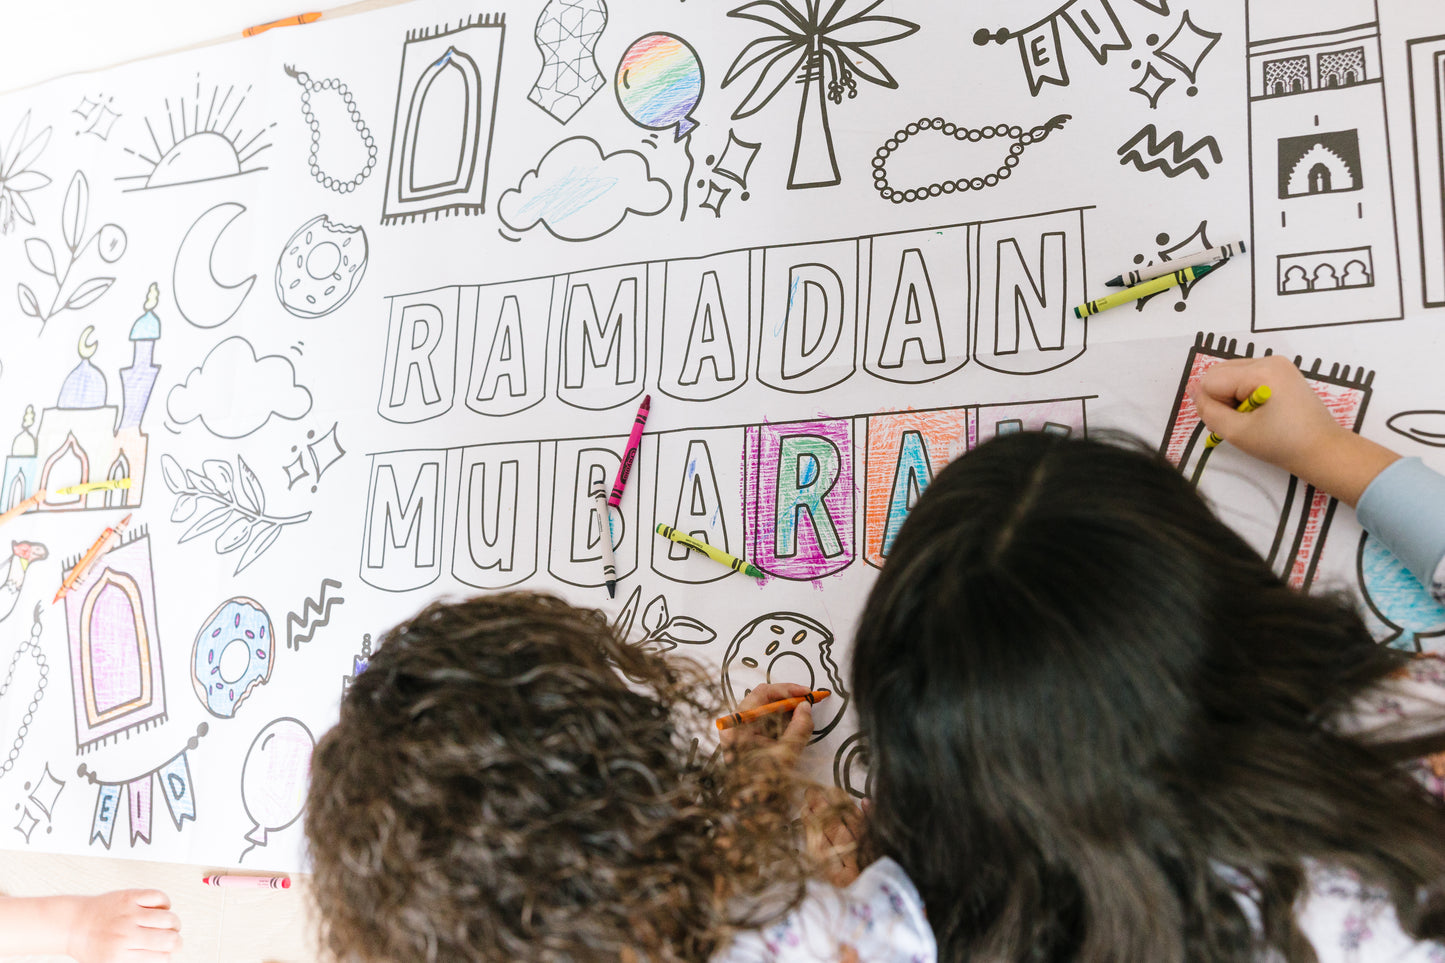 EID
RAMADAN
MUBARA
EID